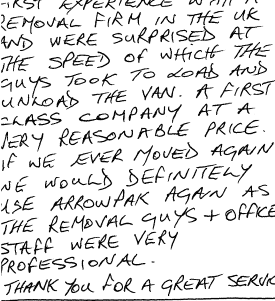 FIRST EXPERIENCE WITH A
REMOVAL FIRM IN THE UK
AND WERE SURPRISED AT
THE SPEED OF WHICH THE
GUYS TOOK TO LOAD AND
UNLOAD THE VAN. A FIRST
CLASS COMPANY AT A
VERY REASONABLE PRICE.
IF WE EVER MOVED AGAIN
WE WOULD DEFINITELY
USE ARROWPAK AGAIN AS
THE REMOVAL GUYS + OFFICE
STAFF WERE VERY
PROFESSIONAL.
THANK YOU FOR A GREAT SERVIC